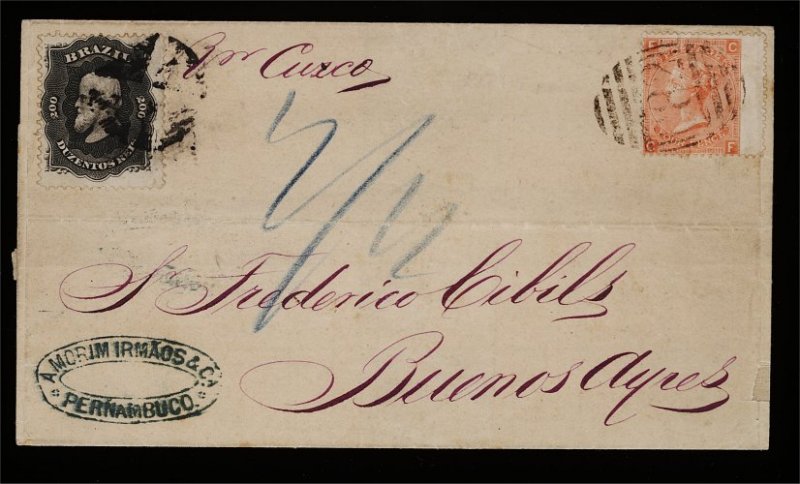 BRAZIL
200
200
DUZENTOS REIS
Per Cuzco
F C
C F
Sr Frederico Cibils
Buenos Ayres
AMORIM IRMÃOS & Cª
PERNAMBUCO